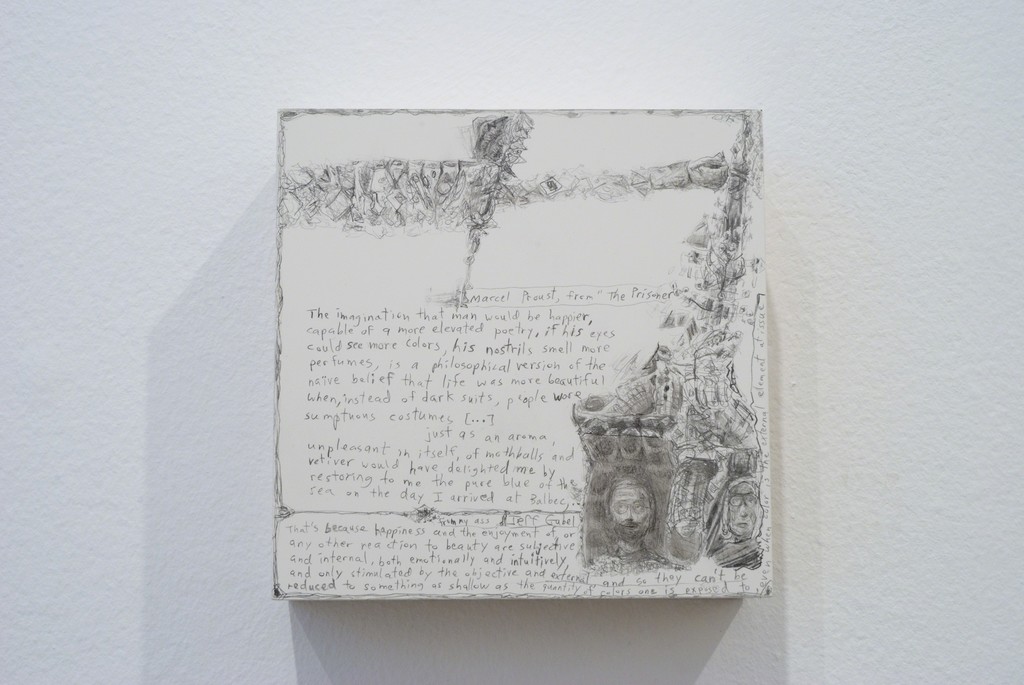 Marcel Proust, from "The Prisoner"
The imagination that man would be happier,
capable of a more elevated poetry, if his eyes
could see more colors, his nostrils smell more
perfumes, is a philosophical version of the
naïve belief that life was more beautiful
when, instead of dark suits, people wore
sumptuous costumes [...]
just as an aroma,
unpleasant in itself, of mothballs and
vetiver would have delighted me by
restoring to me the pure blue of the
sea on the day I arrived at Balbec,...
from my ass Jeff Gabel
That's because happiness and the enjoyment of, or
any other reaction to beauty are subjective
and internal, both emotionally and intuitively,
and only stimulated by the objective and external and so they can't be
reduced to something as shallow as the quantity of colors one is exposed to,
even when color is the external element at issue